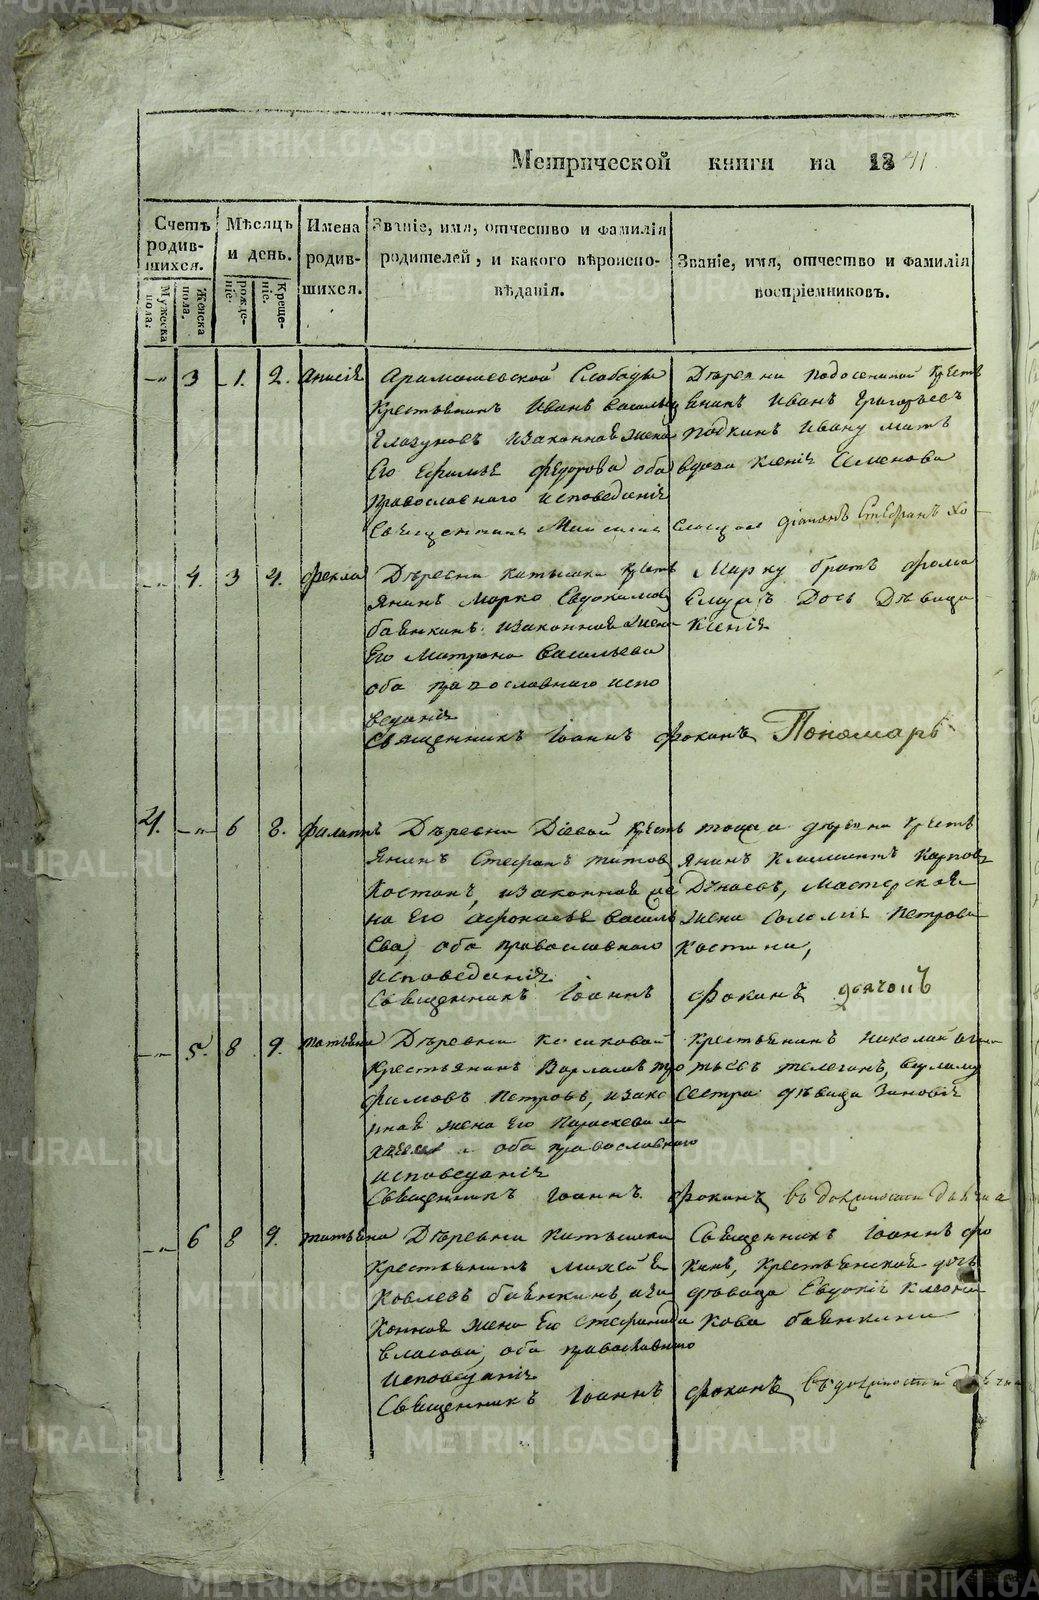 Метрической книги на 1841.
Счетъ родившихся.
Мужеска пола.
Женска пола.
Мѣсяцъ и день.
рожденіе.
Крещеніе.
Имена родившихся.
Званіе, имя, отчество и фамилія
родителей, и какого вѣроиспо-
вѣданія.
Званіе, имя, отчество и фамилія
воспріемниковъ.
3 1. 2. Анисія
Арамашевской Слободы
Крестьянинъ Иванъ Василье
Глазуновъ изаконная жена
Его Ефимья Федорова оба
православнаго исповеданія
Деревни Подосениной Крест
янинъ Иванъ Григорьевъ
Подкинъ Ивану мать
вдова Ксенія Семенова
Священникъ діаконъ Стефанъ
4. 3 4. Фекла
Деревни Катышки Крест
янинъ Марко Евдокимов
баянкинъ изаконная жена
Его Матрона Васильева
оба православнаго испо
веданія
Марку братъ Фома
дочь Дѣвица
Ксенія
Священникъ Іоаннъ Фокинъ Пономарь
4. 6 8. Филиппъ
Деревни Діевой Крест
янинъ Стефанъ Титов
Костинъ, изаконная же
на Его Афонасья Василь
ева, оба православнаго
исповеданія
тояжа деревни Крестъ
янинъ Климентъ Карпов
Дунаевъ, Мастерской
жена Соломія Петрова
Костина,
Священникъ Іоаннъ Фокинъ дьячокъ
5. 8 9. татьяна
Деревни Косиковой
Крестьянинъ Варлаамъ тро
фимовъ Петровъ, изако
нная жена Его Параскева
оба православнаго
исповеданія
Крестьянинъ Николай
телегинъ, Варламу
сестра дѣвица Зиновія
Священникъ Іоаннъ Фокинъ въ должности дьячка
6 8 9. татьяна
Деревни Катышки
Крестьянинъ Матѳей Я
ковлевъ баянкинъ, иза
конная жена Его Стефанида
Власова, оба православнаго
исповеданія
Священникъ Іоаннъ Фо
кинъ, Крестьянская дочь
дѣвица Евдокія
кова баянкина
Священникъ Іоаннъ Фокинъ въ должности дьячка
METRIKI.GASO-URAL.RU